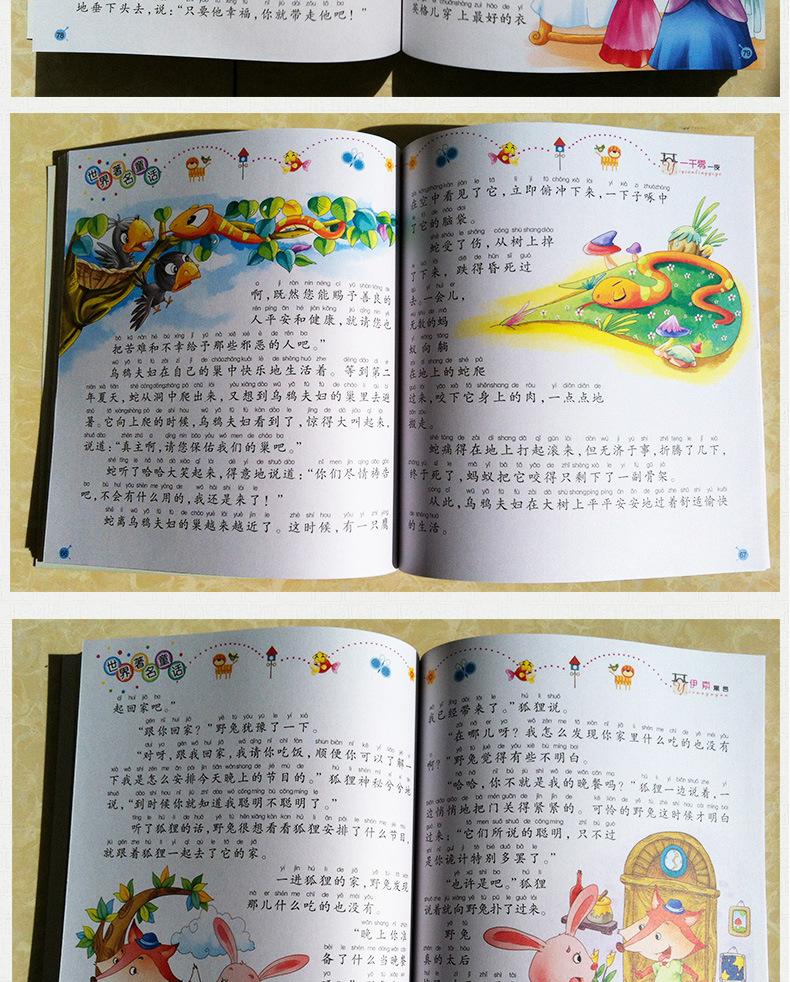 地垂下头去，说：“只要他幸福，你就带走他吧！”
78
英格儿穿上最好的衣
79
世界著名童话
啊，既然您能赐予善良的
人平安和健康，就请您也
把苦难和不幸给予那些邪恶的人吧。”
乌鸦夫妇在自己的巢中快乐地生活着。等到第二
年夏天，蛇从洞中爬出来，又想到乌鸦夫妇的巢里去避
暑。它向上爬的时候，乌鸦夫妇看到了，惊得大叫起来，
说道：“真主啊，请您保佑我们的巢吧。”
蛇听了哈哈大笑起来，得意地说道：“你们尽情祷告
吧，不会有什么用的，我还是来了！”
蛇离乌鸦夫妇的巢越来越近了。这时候，有一只鹰
66
一千零一夜
在空中看见了它，立即俯冲下来，一下子啄中
了它的脑袋。
蛇受了伤，从树上掉
了下来，跌得昏死过
去。一会儿，
无数的蚂
蚁向躺
在地上的蛇爬
过来，咬下它身上的肉，一点点地
搬走。
蛇痛得在地上打起滚来，但无济于事，折腾了几下，
终于死了，蚂蚁把它咬得只剩下了一副骨架。
从此，乌鸦夫妇在大树上平平安安地过着舒适愉快
的生活。
67
世界著名童话
起回家吧。”
“跟你回家？”野兔犹豫了一下。
“对呀，跟我回家，我请你吃饭，顺便你可以了解一
下我是怎么安排今天晚上的节目的。”狐狸神秘兮兮地
说，“到时候你就知道我聪明不聪明了。”
听了狐狸的话，野兔很想看看狐狸安排了什么节目，
就跟着狐狸一起去了它的家。
一进狐狸的家，野兔发现
那儿什么吃的也没有。
“晚上你准
备了什么当晚餐
伊索寓言
我已经带来了。”狐狸说。
“在哪儿呀？我怎么发现你家里什么吃的也没有
啊？”野兔觉得有些不明白。
“哈哈，你不就是我的晚餐吗？”狐狸一边说着，一
边悄悄地把门关得紧紧的。可怜的野兔这时候才明白
过来：“它们所说的聪明，只不过
是你诡计特别多罢了。”
“也许是吧。”狐狸
说着就向野兔扑了过来。
野兔
真的太后